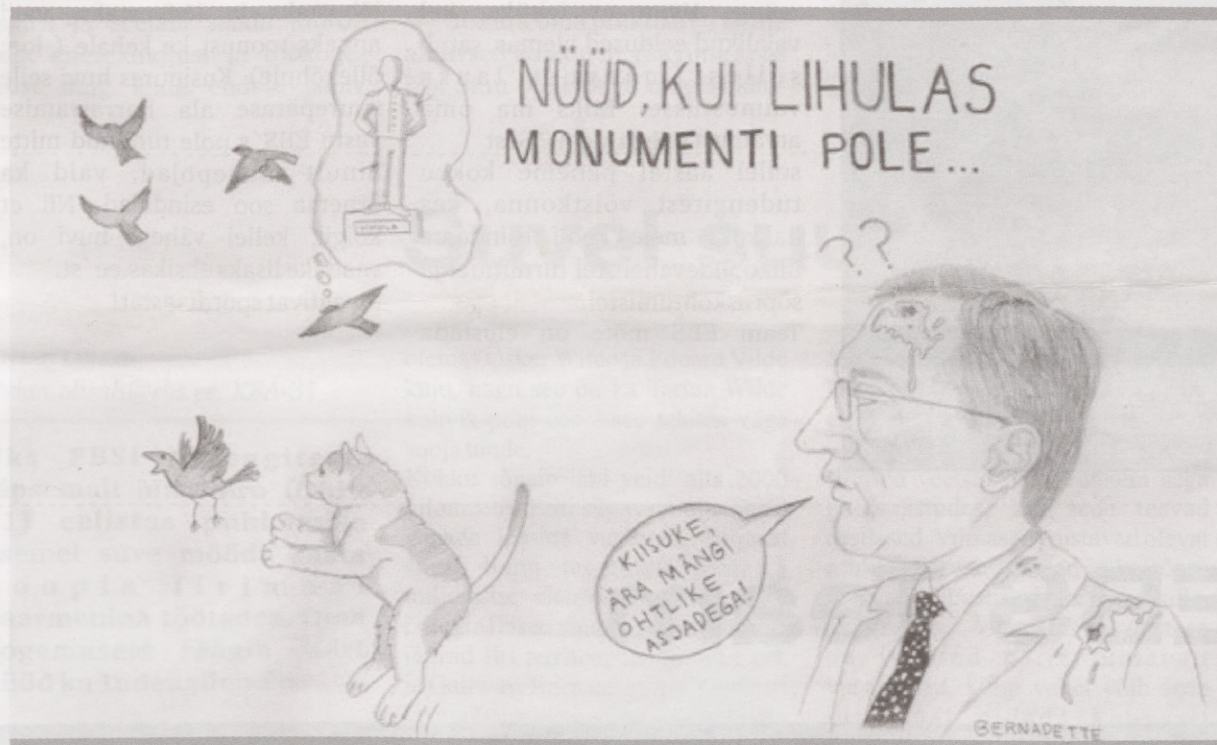 NÜÜD, KUI LIHULAS
MONUMENTI POLE...
??
KIISUKE,
ÄRA MÄNGI
OHTLIKE
ASJADEGA!
BERNADETTE